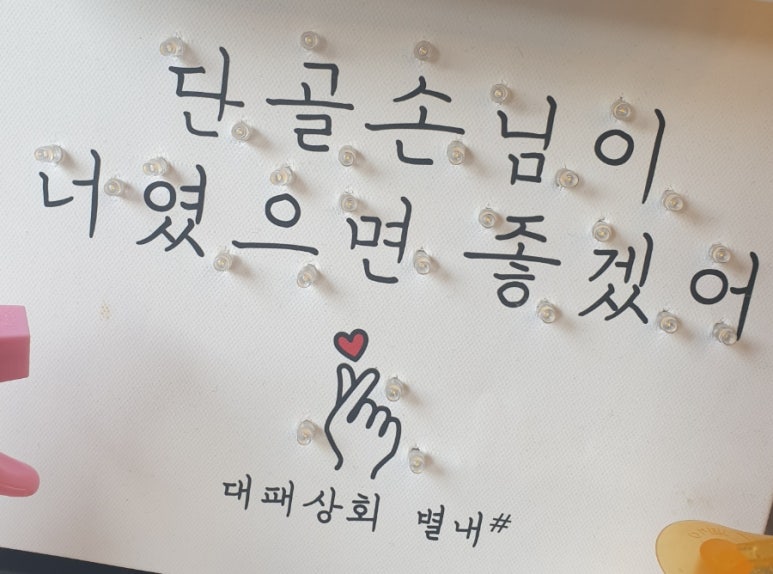 단골손님이
너였으면 좋겠어
대패상회 별내#